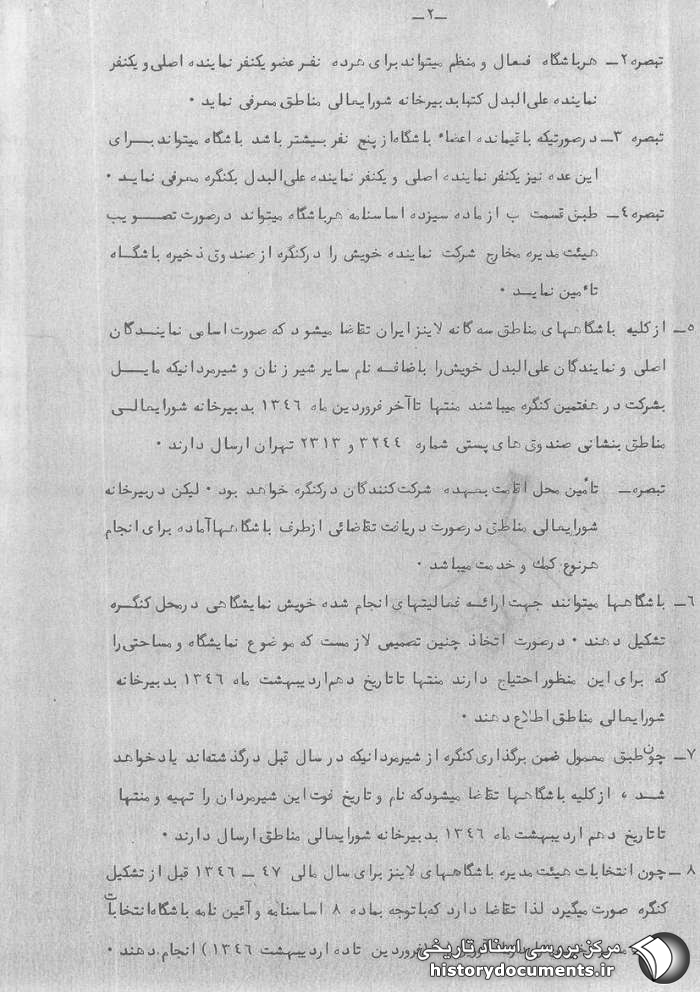 ـ۲ـ
تبصره ۲ـ هرباشگاه فعال و منظم میتواند برای هرده نفر عضو یکنفر نماینده اصلی و یکنفر
نماینده علی‌البدل کتبا بدبیرخانه شورایعالی مناطق معرفی نماید ٠
تبصره ۳ـ درصورتیکه باقیمانده اعضاء باشگاه از پنج نفر بیشتر باشد باشگاه میتواند برای
این عده نیز یکنفر نماینده اصلی و یکنفر نماینده علی‌البدل بکنگره معرفی نماید ٠
تبصره ٤ـ طبق قسمت ب از ماده سیزده اساسنامه هرباشگاه میتواند درصورت تصویب
هیئت مدیره مخارج شرکت نماینده خویش را درکنگره از صندوق ذخیره باشگاه
تاٴمین نماید ٠
٥ـ ازکلیه باشگاههای مناطق سه گانه لاینز ایران تقاضا میشود که صورت اسامی نمایندگان
اصلی و نمایندگان علی‌البدل خویش‌را باضافه نام سایر شیر زنان و شیرمردانیکه مایل
بشرکت در هفتمین کنگره میباشند منتها تاآخر فروردین ماه ۱۳٤٦ بدبیرخانه شورایعالی
مناطق بنشانی صندوق های پستی شماره ۳۲٤٤ و ۲۳۱۳ تهران ارسال دارند ٠
تبصره ـ تاٴمین محل اقامت بعهده شرکت‌کنندگان درکنگره خواهد بود ٠ لیکن دربیرخانه
شورایعالی مناطق درصورت دریافت تقاضائی ازطرف باشگاهها آماده برای انجام
هرنوع کمک و خدمت میباشد ٠
٦ـ باشگاهها میتوانند جهت ارائه فعالیتهای انجام شده خویش نمایشگاهی درمحل کنگره
تشکیل دهند ٠ درصورت اتخاذ چنین تصمیمی لازمست که موضوع نمایشگاه و مساحتی‌را
که برای این منظور احتیاج دارند منتها تاتاریخ دهم اردیبهشت ماه ۱۳٤٦ بدبیرخانه
شورایعالی مناطق اطلاع دهند ٠
۷ـ چون طبق معمول ضمن برگذاری کنگره از شیرمردانیکه در سال قبل درگذشته‌اند یادخواهد
شد ، ازکلیه باشگاهها تقاضا میشودکه نام و تاریخ فوت این شیرمردان را تهیه و منتها
تاتاریخ دهم اردیبهشت ماه ۱۳٤٦ بدبیرخانه شورایعالی مناطق ارسال دارند ٠
۸ـ چون انتخابات هیئت مدیره باشگاههای لاینز برای سال مالی ٤۷ ـ ۱۳٤٦ قبل از تشکیل
کنگره صورت میگیرد لذا تقاضا دارد که‌باتوجه بماده ۸ اساسنامه و آئین نامه باشگاه‌انتخابات
فروردین تاده اردیبهشت ۱۳٤٦) انجام دهند ٠
مرکز بررسی اسناد تاریخی
historydocuments.ir